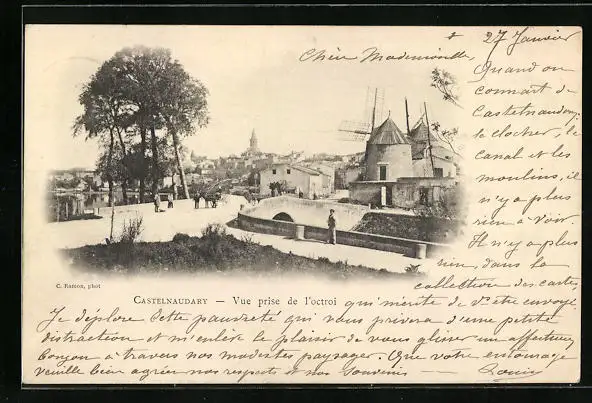 27 Janvier
Chère Mademoiselle
Quand on
connait de
Castelnaudary
le clocher, le
canal et les
moulins, il
n'y a plus
rien à voir.
Il n'y a plus
rien, dans la
collection des cartes
C. Ramon, phot
CASTELNAUDARY — Vue prise de l'octroi
qui mérite de être envoyé
Je déplore cette pauvreté qui vous privera d'une petite
distraction et m'enlève le plaisir de vous glisser un affectueux
bonjour à travers nos modestes paysages. Que votre entourage
veuille bien agréer nos respects et nos souvenirs
Louis